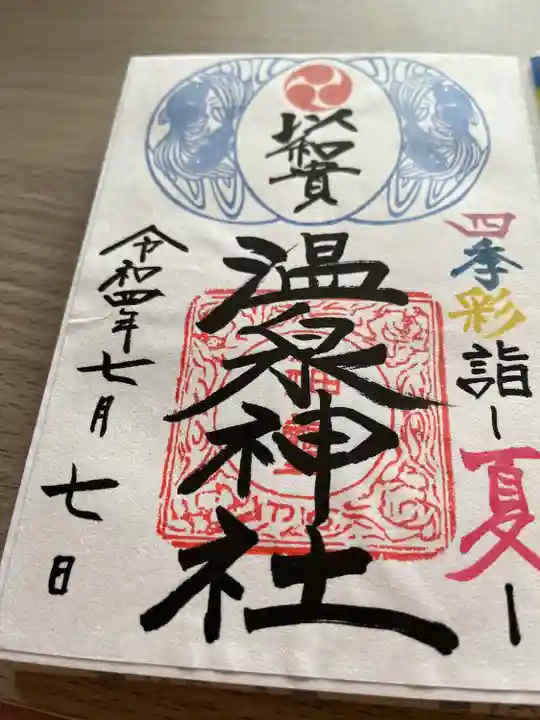 四季彩詣
ー夏ー
以和貴
温泉神社
令和四年七月七日